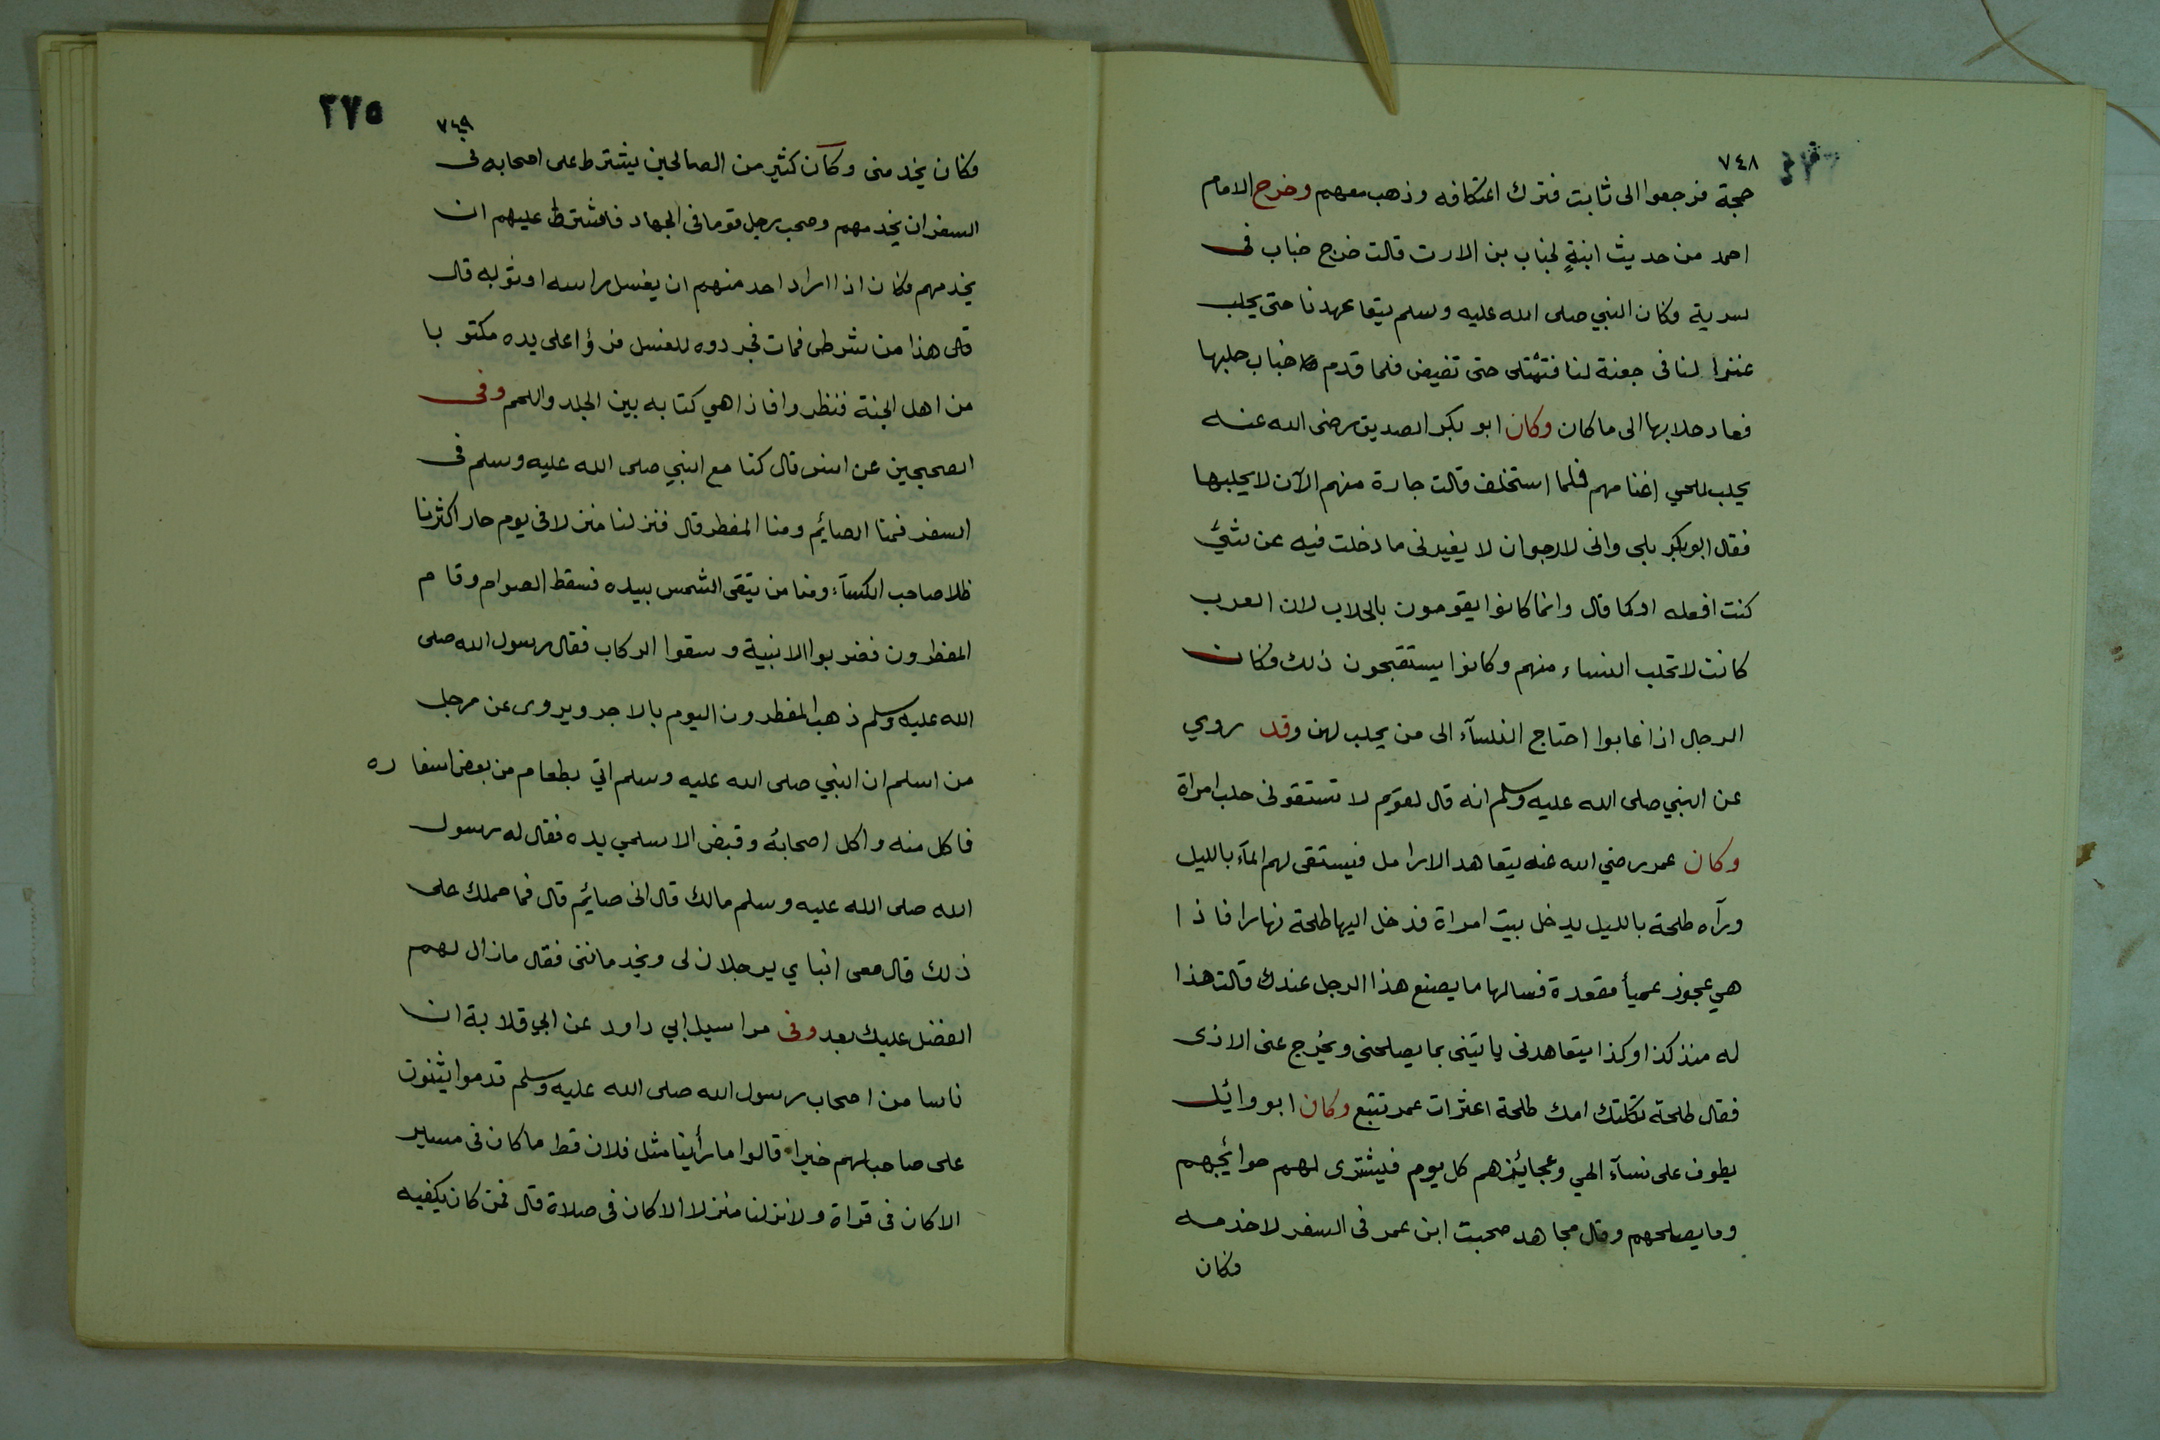 ٧٤٨
حجة فرجعوا الى ثابت فترك اعتكافه وذهب معهم وخرج الامام
احمد من حديث ابنةٍ لخباب بن الارت قالت خرج خباب فى
سرية وكان النبي صلى الله عليه وسلم يتعاهدنا حتى يحلب
عنزا لنا فى جفنة لنا فتمتلى حتى تفيض فلما قدم خباب حلبها
فعاد حلابها الى ما كان وكان ابو بكر الصديق رضى الله عنه
يحلب للحي اغنامهم فلما استخلف قالت جارة منهم الآن لا يحلبها
فقال ابو بكر بلى وانى لارجوان لا يغيرنى ما دخلت فيه عن شئ
كنت افعله او كما قال وانما كانوا يقومون بالحلاب لان العرب
كانت لا تحلب النساء منهم وكانوا يستقبحون ذلك وكان
الرجال اذا غابوا احتاج النساء الى من يحلب لهن وقد روي
عن النبي صلى الله عليه وسلم انه قال لقوم لا تستقونى حلب امراة
وكان عمر رضي الله عنه يتعاهد الارامل فيستقى لهم المآء بالليل
ورآه طلحة بالليل يدخل بيت امراة فدخل اليها طلحة نهارا فاذا
هي عجوز عميأ مقعدة فسالها ما يصنع هذا الرجل عندك قالت هذا
له منذ كذا وكذا يتعاهدنى ياتينى بما يصلحنى ويخرج عنى الاذى
فقال طلحة ثكلتك امك طلحة اعثرات عمر تتبع وكان ابو وائل
يطوف على نسآء الحي وعجايئزهم كل يوم فيشترى لهم حوائجهم
وما يصلحهم وقال مجاهد صحبت ابن عمر فى السفر لاخدمه
وكان
٢٧٥
٧٤٩
فكان يخدمنى وكان كثير من الصالحين يشترط على اصحابه فى
السفر ان يخدمهم وصحب رجل قوما فى الجهاد فاشترط عليهم ان
يخدمهم وكان اذا اراد احد منهم ان يغسل راسه او ثوبه قال
قال هذا من شرطى فمات فجردوه للغسل فرؤا على يده مكتوبا
من اهل الجنة فنظروا فاذا هي كتابه بين الجلد واللحم وفى
الصحيحين عن انس قال كنا مع النبي صلى الله عليه وسلم فى
السفر فمنا الصايئم ومنا المفطر قال فنزلنا منزلا فى يوم حار اكثرنا
ظلا صاحب الكسآء ومنا من يتقى الشمس بيده فسقط الصوام وقام
المفطرون فضربوا الابنية وسقوا الركاب فقال رسول الله صلى
الله عليه وسلم ذهب المفطرون اليوم بالاجر ويروى عن رجل
من اسلم ان النبي صلى الله عليه وسلم اتي بطعام من بعض اسفاره
فاكل منه واكل اصحابه وقبض الاسلمي يده فقال له رسول
الله صلى الله عليه وسلم مالك قال انى صايئم قال فما حملك على
ذلك قال معى ابناي يرحلان لى ويخدماننى فقال ما زال لهم
الفضل عليك بعد وفى مراسيل ابي داود عن ابي قلابة ان
ناسا من اصحاب رسول الله صلى الله عليه وسلم قدموا يثنون
على صاحب لهم خيرا قالوا ما رأينا مثل فلان قط ما كان فى مسير
الا كان فى قراة ولا نزلنا منزلا الا كان فى صلاة قال فمن كان يكفيه